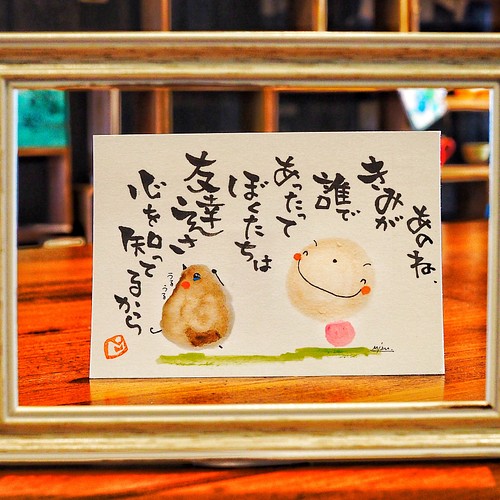 あのね、
きみが
誰で
あったって
ぼくたちは
友達さ
心を知ってるから
うる
うる